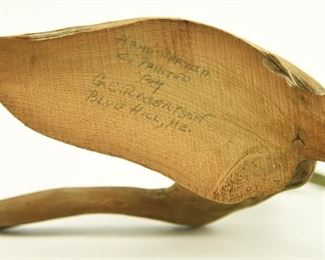 HAND-CARVED
& PAINTED
BY
G.G. ROBERTSON
BLUE HILL, ME.